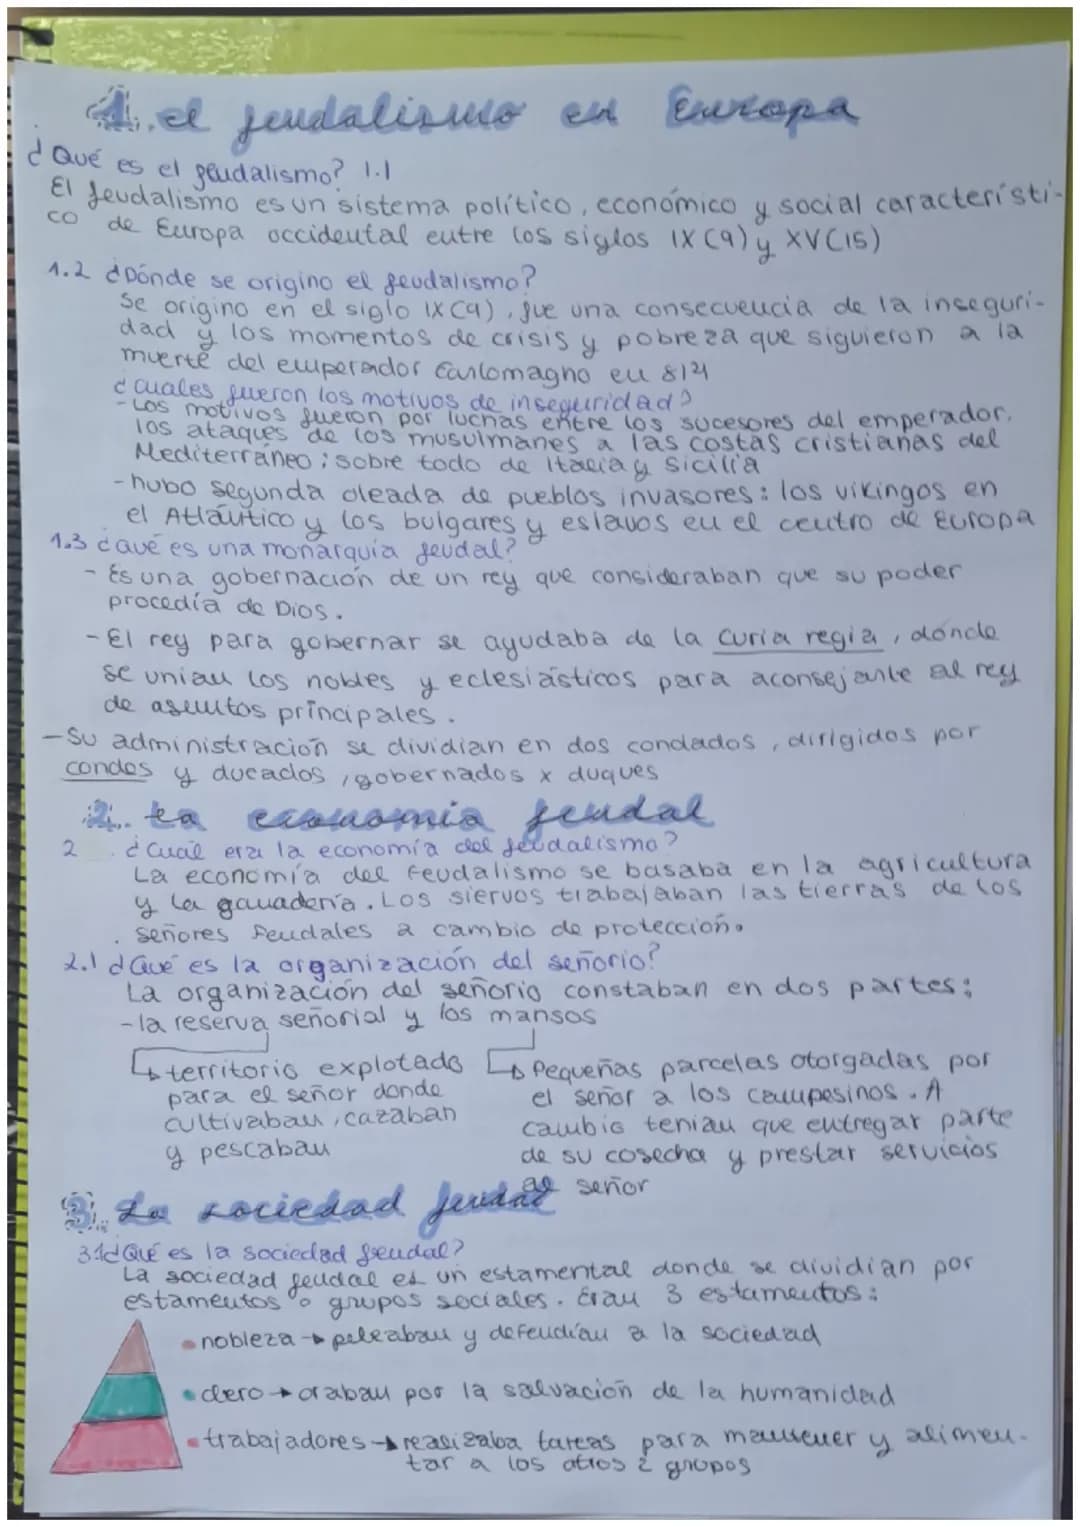 1. el feudalismo en Europa
¿Qué es el feudalismo? 1.1
El feudalismo es un sistema político, económico y social característi-
co de Europa occidental entre los siglos IX (9) y XV (15)
1.2 ¿Dónde se origino el feudalismo?
Se origino en el siglo IX (9), fue una consecuencia de la inseguri-
dad y los momentos de crisis y pobreza que siguieron a la
muerte del emperador Carlomagno en 814
¿Cuales fueron los motivos de inseguridad?
-Los motivos fueron por luchas entre los sucesores del emperador.
los ataques de los musulmanes a las costas cristianas del
Mediterráneo; sobre todo de Italia y Sicilia
-hubo segunda oleada de pueblos invasores: los vikingos en
el Atlántico y los bulgares y eslavos en el centro de Europa
1.3 ¿Qué es una monarquía feudal?
- Es una gobernación de un rey que consideraban que su poder
procedía de Dios.
-El rey para gobernar se ayudaba de la curia regia, donde
se unían los nobles y eclesiásticos para aconsejarle al rey
de asuntos principales.
-Su administración se dividían en dos condados, dirigidos por
condes y ducados, gobernados x duques
2. La economía feudal
2 ¿Cuál era la economía del feudalismo?
La economía del Feudalismo se basaba en la agricultura
y la ganadería. Los siervos trabajaban las tierras de los
señores feudales a cambio de protección.
2.1 ¿Qué es la organización del señorío?
La organización del señorio constaban en dos partes:
-la reserva señorial y los mansos
territorio explotado
para el señor donde
cultivaban, cazaban
y pescaban
Pequeñas parcelas otorgadas por
el señor a los campesinos. A
cambio tenían que entregar parte
de su cosecha y prestar servicios
al señor
3. La sociedad feudal
3.1 ¿Qué es la sociedad feudal?
La sociedad feudal es un estamental donde se dividían por
estamentos o grupos sociales. Eran 3 estamentos:
• nobleza → peleaban y defendían a la sociedad
• clero → oraban por la salvación de la humanidad
• trabajadores → realizaba tareas para mantener y alimen-
tar a los otros 2 grupos